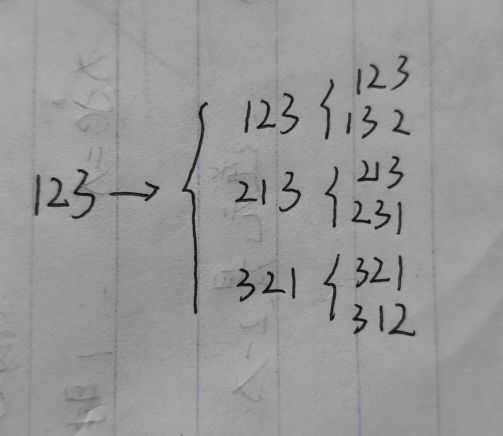 123
132
123
213
213
231
123 →
321
321
312